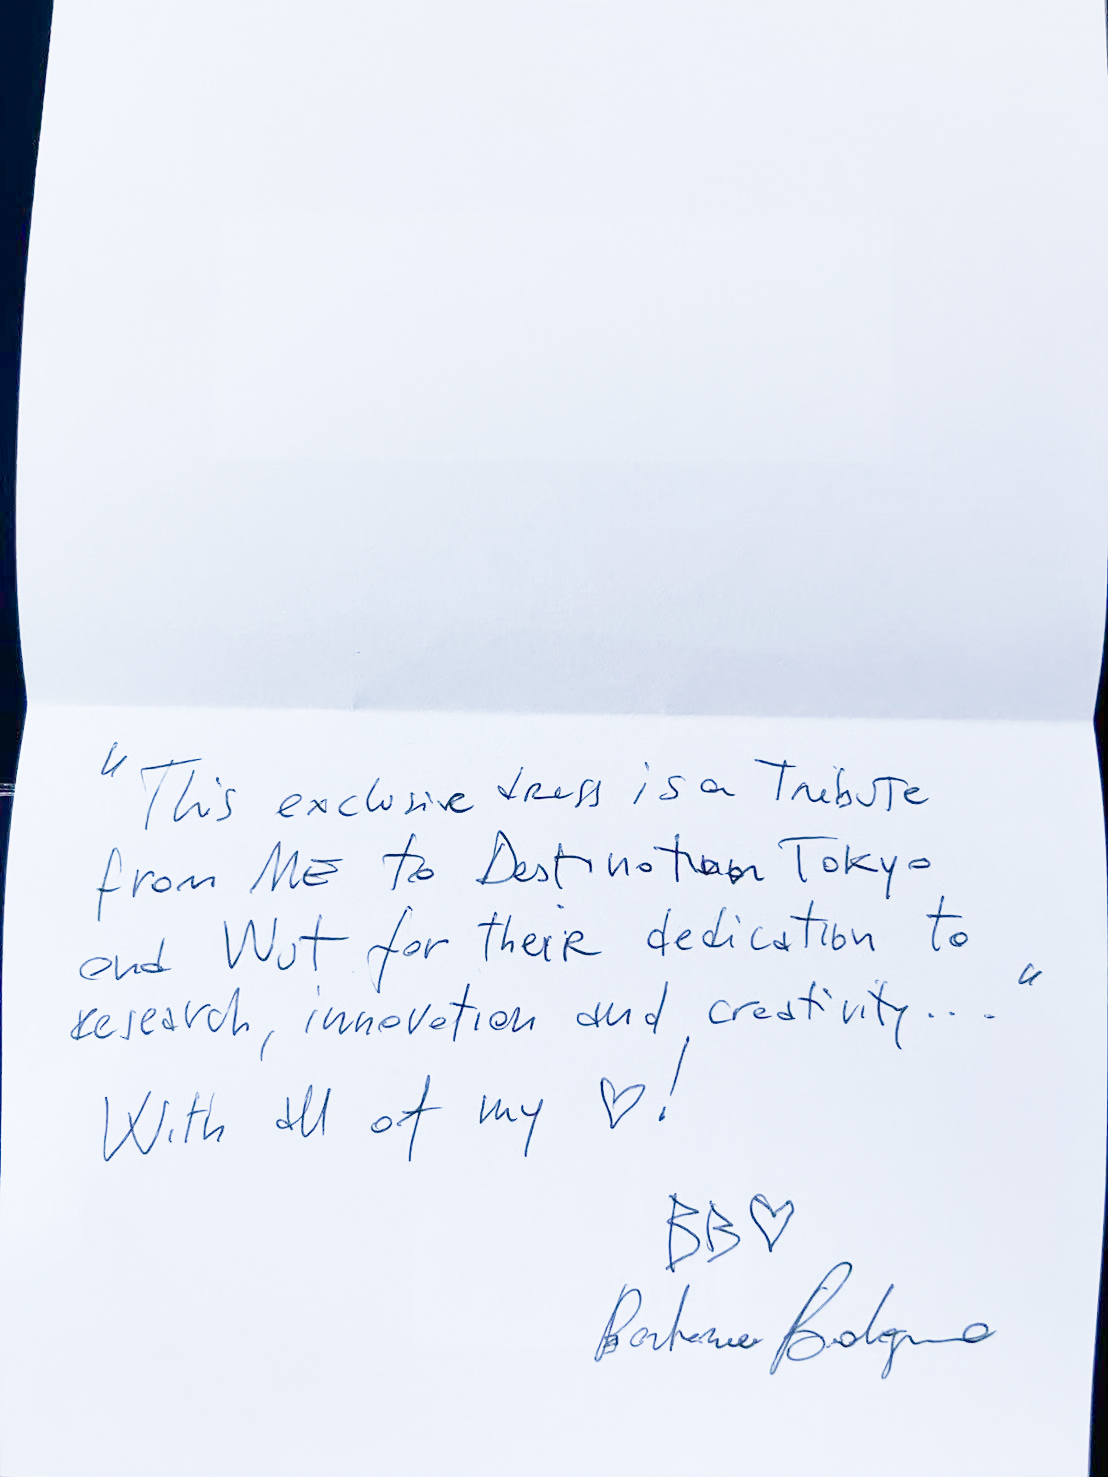 "This exclusive dress is a Tribute
from ME to Destination Tokyo
and Wut for their dedication to
research, innovation and creativity...."
With all of my ♡!
BB♡
Barbara Bologna